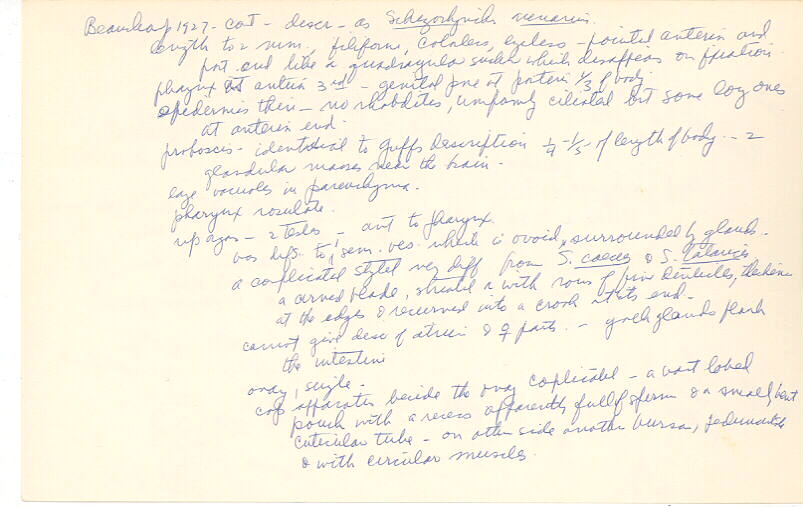 Beauchamp 1927 - cont - descr - as Schizorhynchus
length to 2 mm., filiform, colorless, eyeless - pointed anterior and
post. end like a quadrangular sucker which disappears on fixation.
pharynx at anterior 3rd - genital pore at posterior 1/3 of body
epidermis thin - no rhabdites, uniformly ciliated but some long ones
at anterior end.
proboscis - identical to Graff's description 1/4 - 1/5 of length of body - 2
glandular masses near the brain.
large vacuoles in parenchyma.
pharynx rosulate.
rep organs - 2 testes - ant to pharynx.
vas defs. to sem. ves. which is ovoid, surrounded by glands.
a complicated stylet very diff from S. caecus & S. tataricus
a curved blade, striated with rows of fine denticules,
at the edges & recurved into a crook at its end.
cannot give desc of atrium & ♀ parts. - yolk glands flank
the intestine
ovary, single.
cop apparatus beside the ovary complicated - a vast lobed
pouch with a recess apparently full of sperm & a small, bent
cuticular tube - on other side another bursa, pedunculate
& with circular muscles.